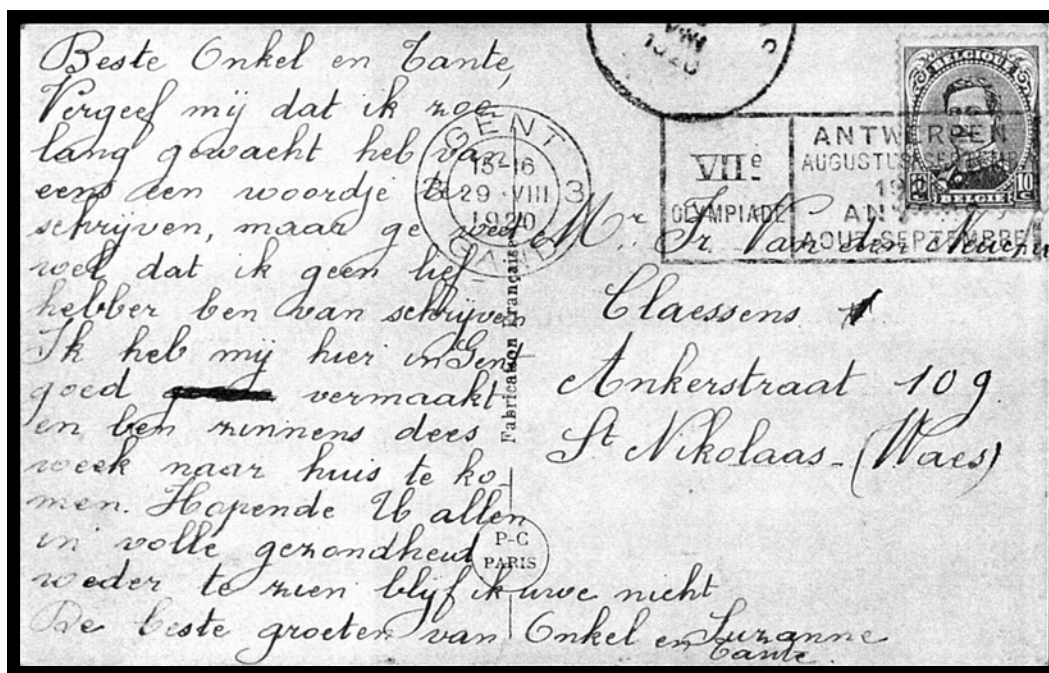 Beste Onkel en Tante,
Vergeef mij dat ik zoo
lang gewacht heb van
eens een woordje te
schrijven, maar ge weet
wel dat ik geen lief
hebber ben van schrijven
Ik heb mij hier in Gent
goed vermaakt
en ben zinnens dees
week naar huis te ko-
men. Hopende U allen
in volle gezondheid
weder te zien blijf ik uwe nicht
Suzanne
De beste groeten van Onkel en
Tante.
GENT
15-16
29 VIII
1920
3
GAND
1920
VIIe
OLYMPIADE
ANTWERPEN
AUGUSTUS-SEPTEMB
19
AN
AOUT-SEPTEMBRE
BELGIQUE
10
BELGIE
Mr Fr. Van den
Claessens
Ankerstraat 109
St Nikolaas - (Waes)
Fabrication Française
P-C
PARIS